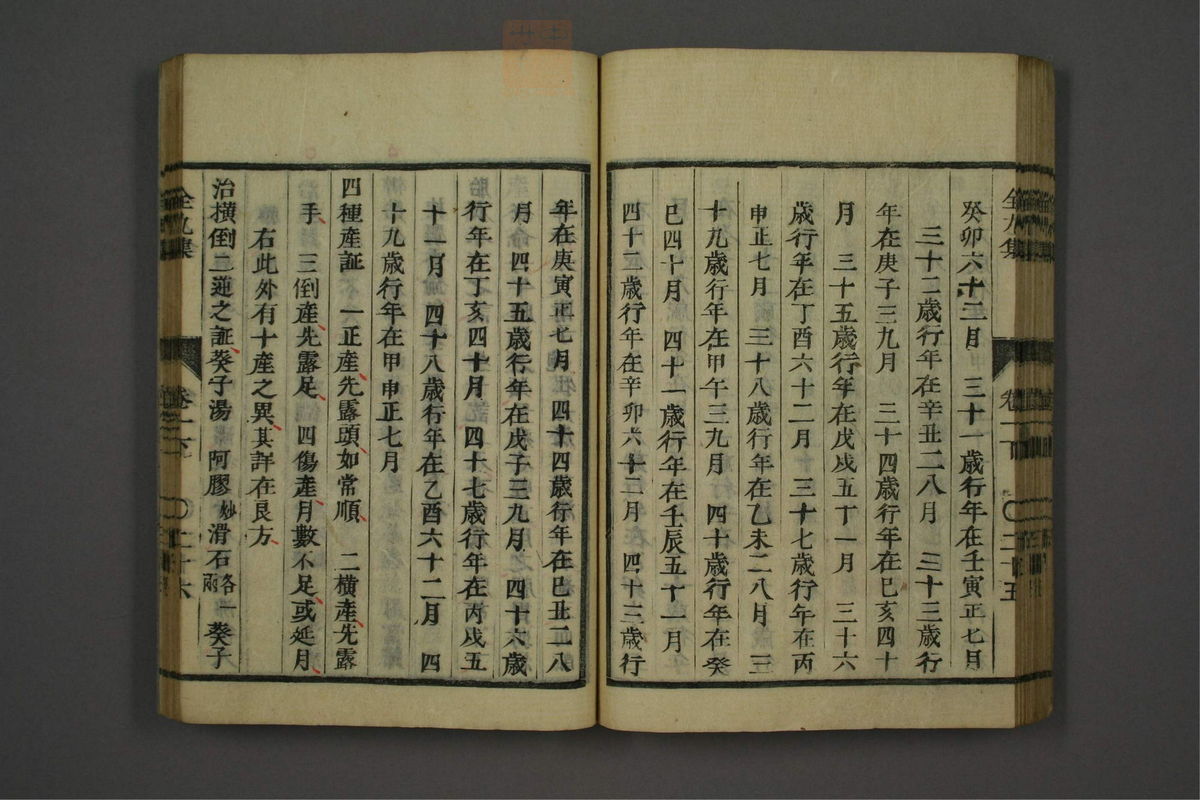 癸卯六十二月　三十一歳行年在壬寅正七月
三十二歳行年在辛丑二八月　三十三歳行
年在庚子三九月　三十四歳行年在己亥四十
月　三十五歳行年在戊戌五十一月　三十六
歳行年在丁酉六十二月　三十七歳行年在丙
申正七月　三十八歳行年在乙未二八月　三
十九歳行年在甲午三九月　四十歳行年在癸
巳四十月　四十一歳行年在壬辰五十一月
四十二歳行年在辛卯六十二月　四十三歳行
全九集　卷一下　〇二十五
年在庚寅正七月　四十四歳行年在己丑二八
月　四十五歳行年在戊子三九月　四十六歳
行年在丁亥四十月　四十七歳行年在丙戌五
十一月　四十八歳行年在乙酉六十二月　四
十九歳行年在甲申正七月
四種産証　一正産先露頭如常順　二横産先露
手　三倒産先露足　四傷産月數不足或延月
右此外有十産之異其詳在良方
治横倒二逆之証葵子湯　阿膠炒　滑石各一兩　葵子
全九集　卷一下　〇二十六